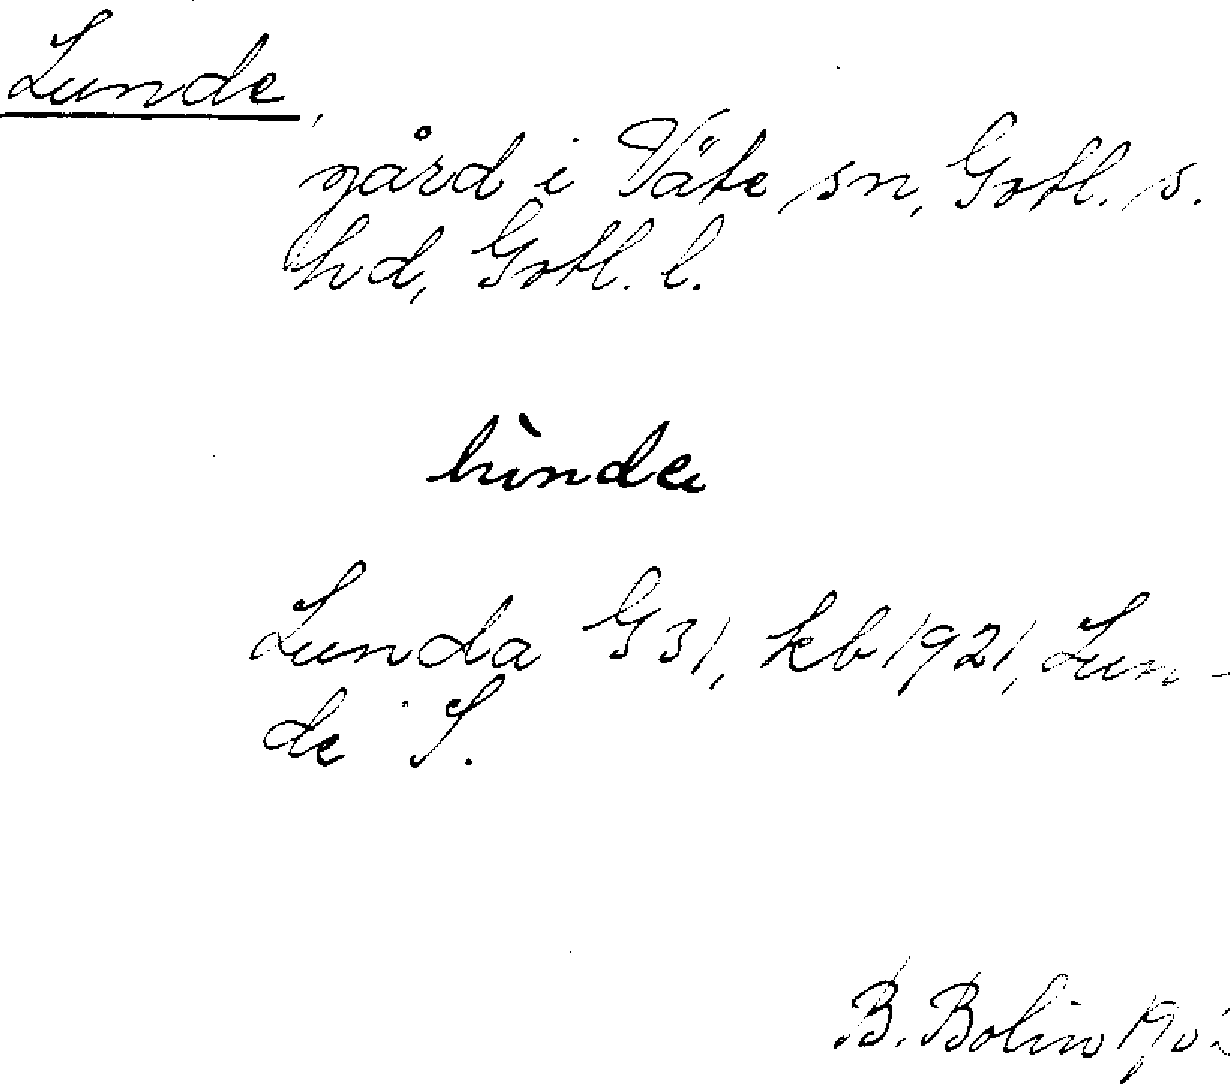 Lunde,
gård i Väte sn, Gotl. s.
hd, Gotl. l.
Lunda G 31, kb 1921, Lun-
de S.
B. Bolin